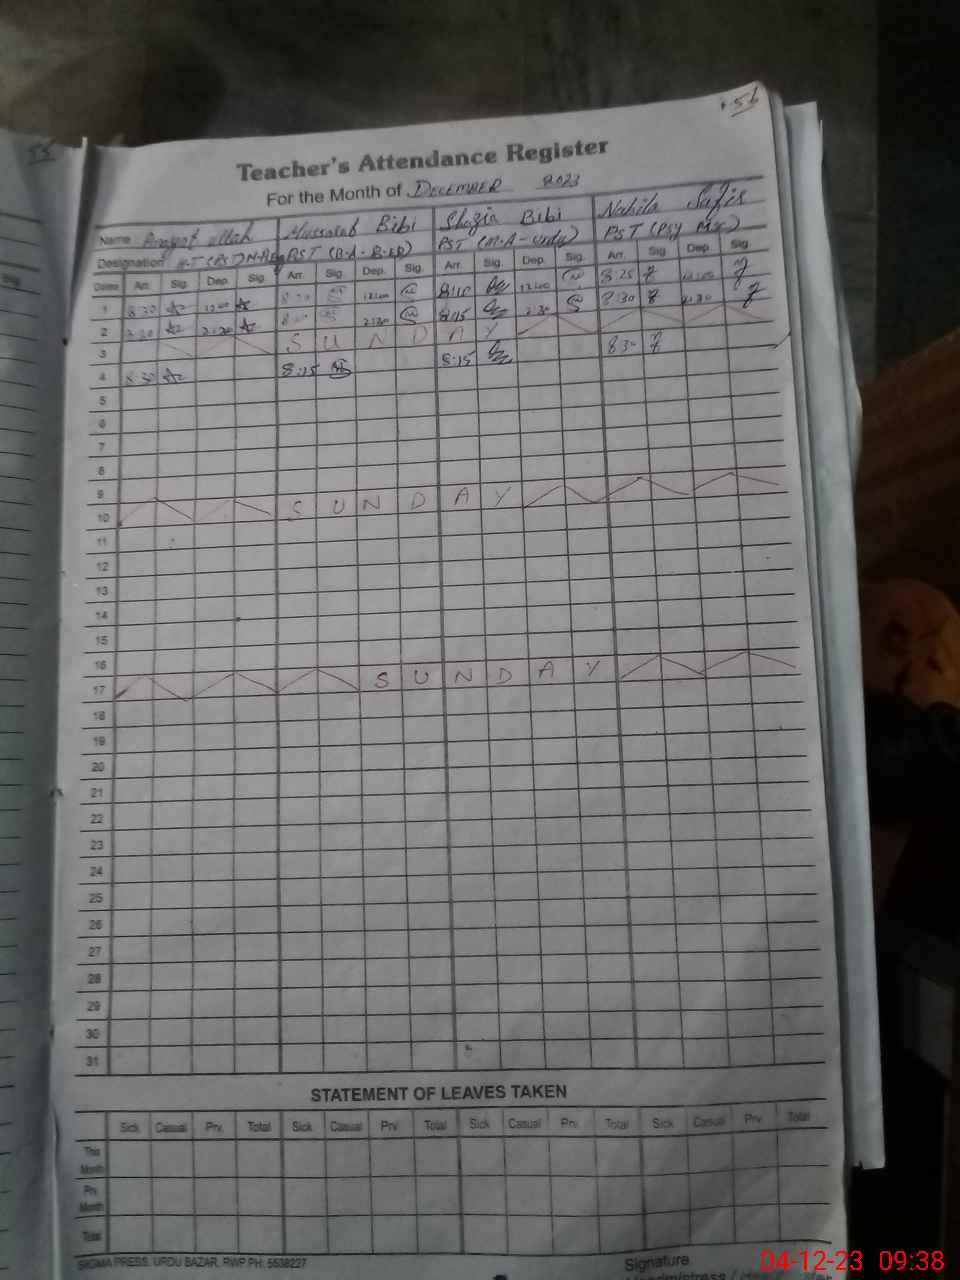 55
56
Teacher's Attendance Register
For the Month of DECEMBER 2023
Name Mussarat Bibi Shazia Bibi Nabila
Designation PST (B.A - B.ED) PST (M.A - Urdu) PST
Dates Arr. Sig. Dep. Sig. Arr. Sig. Dep. Sig. Arr. Sig. Dep. Sig. Arr. Sig. Dep. Sig.
1 8:20 12:00 12:00 8:10 12:00 8:25 12:00
2 8:20 2:30 2:30 8:15 2:30 8:30 2:30
3 S U N D A Y
4 8:30 8:15 8:15 8:30
5
6
7
8
9
10 S U N D A Y
11
12
13
14
15
16
17 S U N D A Y
18
19
20
21
22
23
24
25
26
27
28
29
30
31
STATEMENT OF LEAVES TAKEN
Sick Casual Prv. Total Sick Casual Prv. Total Sick Casual Prv. Total Sick Casual Prv. Total
This Month
Prv. Month
Total
SIGMA PRESS, URDU BAZAR, RWP PH: 5538227
Signature
04-12-23 09:38